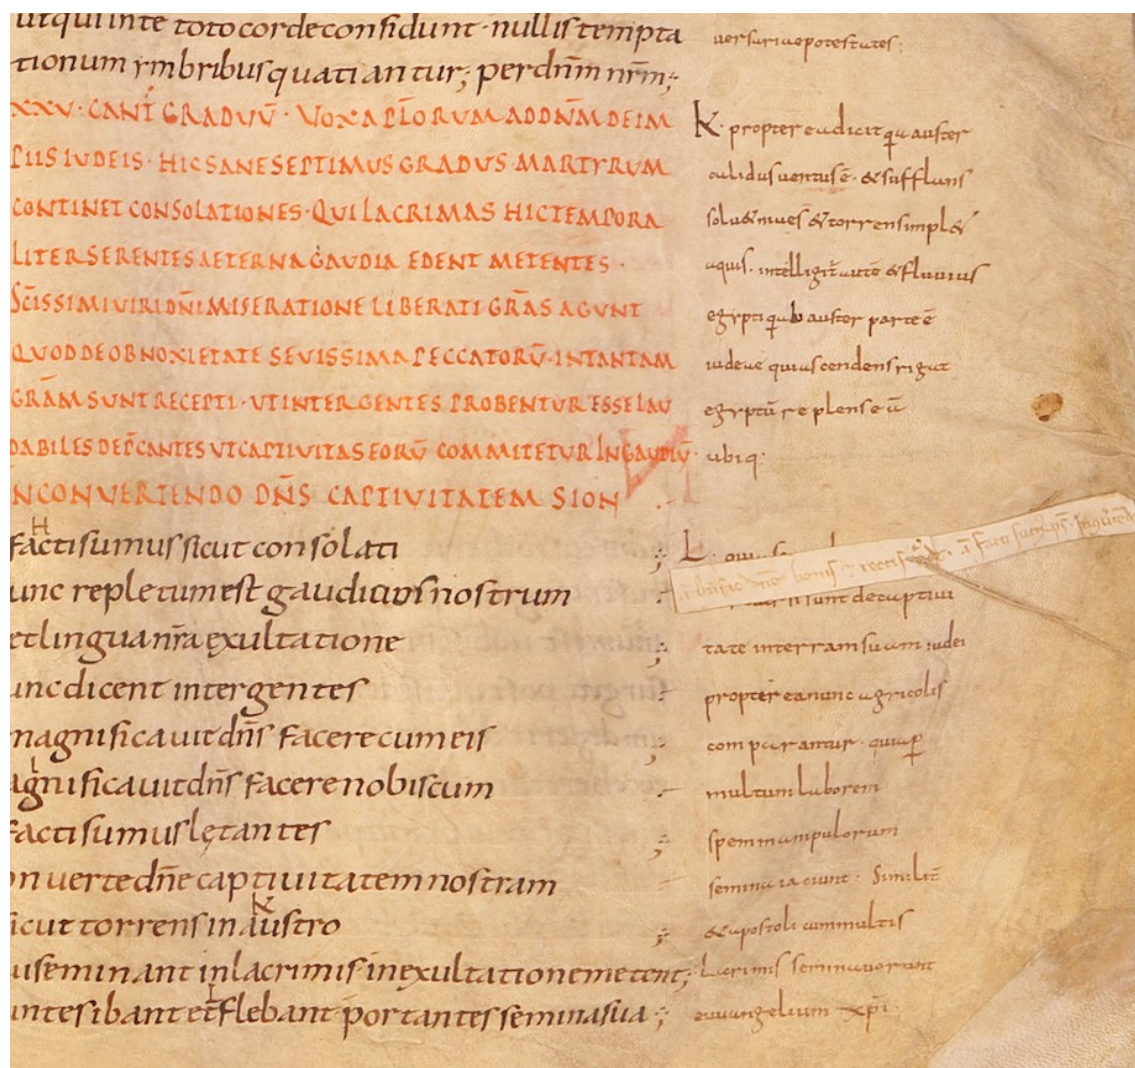 utqui inte toto corde confidunt · nullis tempta
tionum ymbribus quatiantur; per dnm nrm;
XXV · CANT GRADUU · VOX APLORUM AD DNM DE IM
PIIS IUDEIS · HIC SANE SEPTIMUS GRADUS MARTYRUM
CONTINET CONSOLATIONES · QUI LACRIMAS HIC TEMPORA
LITER SERENTES AETERNA GAUDIA EDENT METENTES ·
SCISSIMI UIRI DNI MISERATIONE LIBERATI GRAS AGUNT
QUOD DE OBNOXIETATE SEVISSIMA PECCATORU · IN TANTAM
GRAM SUNT RECEPTI · UT INTER GENTES PROBENTUR ESSE LAU
DABILES DEPCANTES UT CAPTIVITAS EORU COMMITETUR IN GAUDIU
IN CONVERTENDO DNS CAPTIVITATEM SION
H
facti sumus sicut consolati ;
unc repletum est gaudio os nostrum
et lingua nra exultatione ;
unc dicent inter gentes
magnificauit dns facere cum eis
L
agnificauit dns facere nobiscum
facti sumus lętantes ;
onuerte dne captiuitatem nostram
K
icut torrens in austro ;
ui seminant in lacrimis · in exultatione metent;
L
untes ibant et flebant portantes semina sua ;
uersariae potestates;
K · propterea dicit qua auster
calidus uentus e · & sufflans
solu& niues & torrens impl&
aquis · intelligit aute & fluuius
egypti qui ab auster parte e
iudeae qui ascendens rigat
egyptu replens eu
ubiq;
L · quia
sunt de captiui
tate in terram suam iudei
propterea nunc agricolis
comparantur · quia p
multum laborem
spem manipulorum
semina iaciunt · Similit
& apostoli cum multis
lacrimis seminauerunt
euuangelium xpi ·